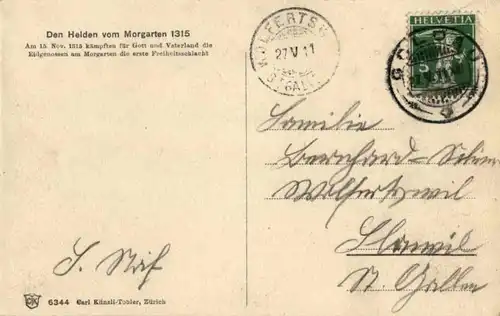 Den Helden vom Morgarten 1315
Am 15. Nov. 1315 kämpften für Gott und Vaterland die
Eidgenossen am Morgarten die erste Freiheitsschlacht
27 V 11
HELVETIA
Familie
Bernhard-
Wolfertswil
Flawil
St. Gallen
6344 Carl Künzli-Tobler, Zürich